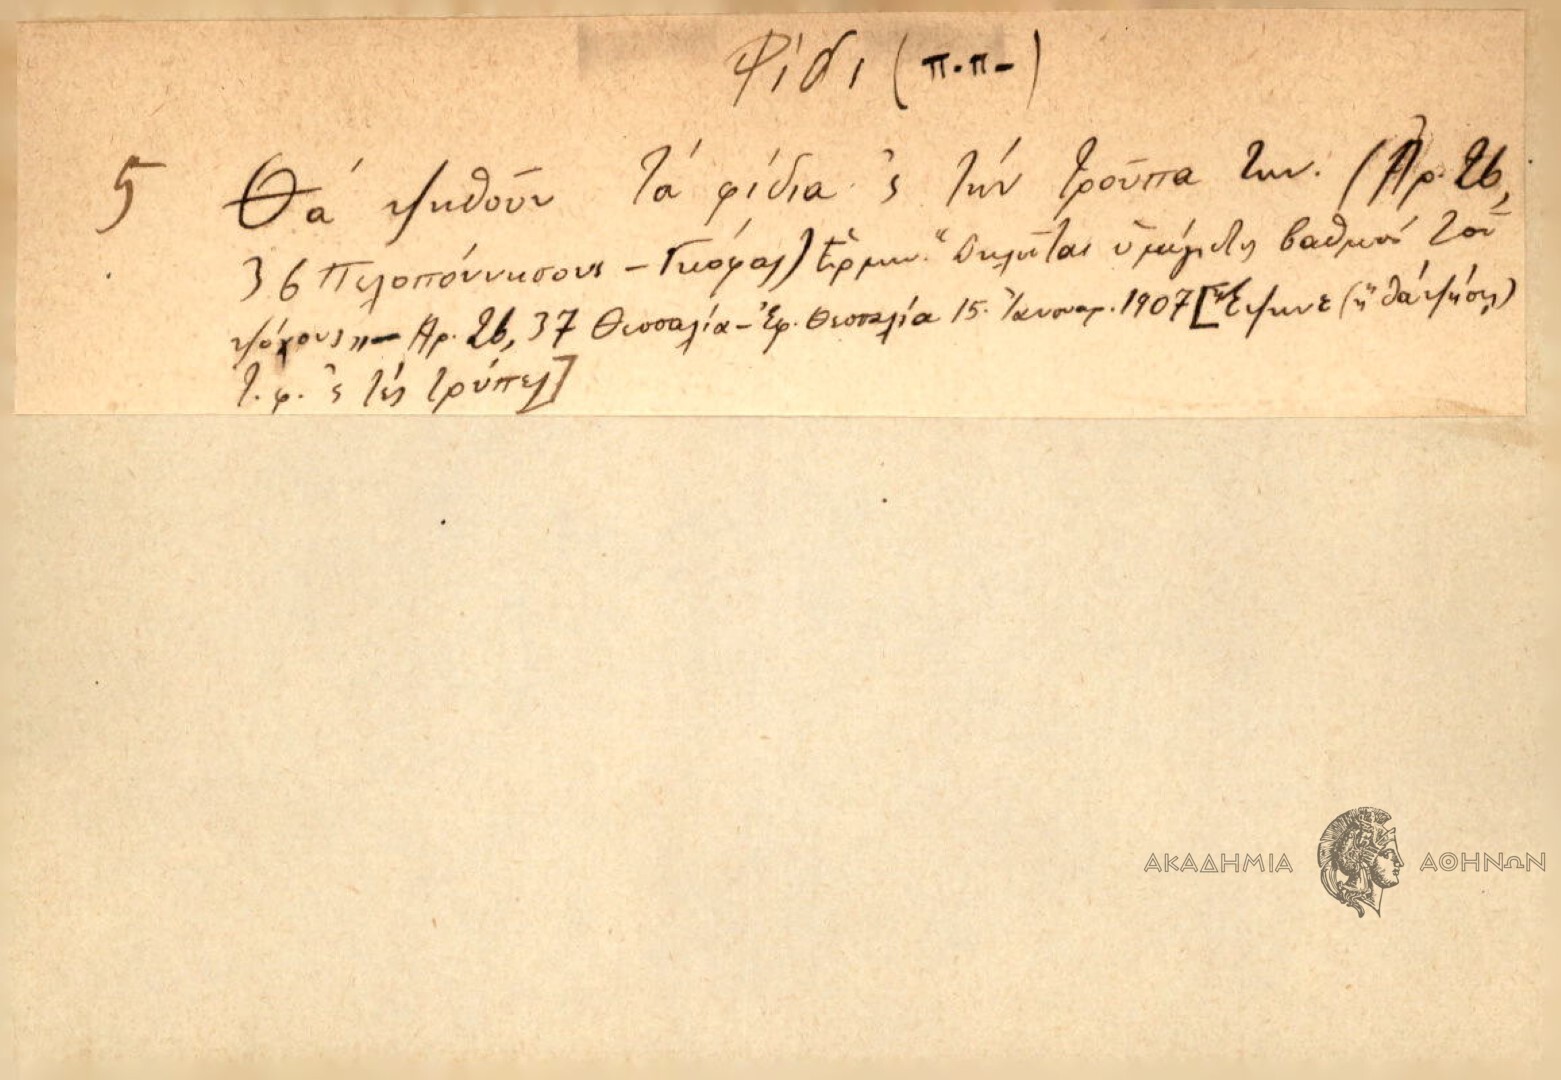 Φίδι (π.π-)
5 Θά ψηθοῦν τά φίδια 'ς τήν τροῦπα των. (Αρ. 26,
36 Πελοπόννησους - Γκόφας) Ἑρμην. "Δηλοῦται ὁ βαθμός τοῦ
ψύχους" - Αρ. 26, 37 Θεσσαλία - Ἐφ. Θεσσαλία 15. Ἰανουαρ. 1907 [Ἔψηνε (ἤ θά ψήσῃ)
τ. φ. 'ς τές τρύπες]
ΑΚΑΔΗΜΙΑ ΑΘΗΝΩΝ